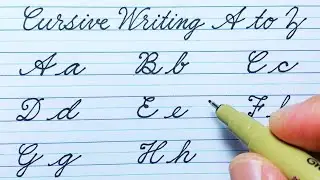 Cursive Writing A to Z
A a B b C c
D d E e F f
G g H h